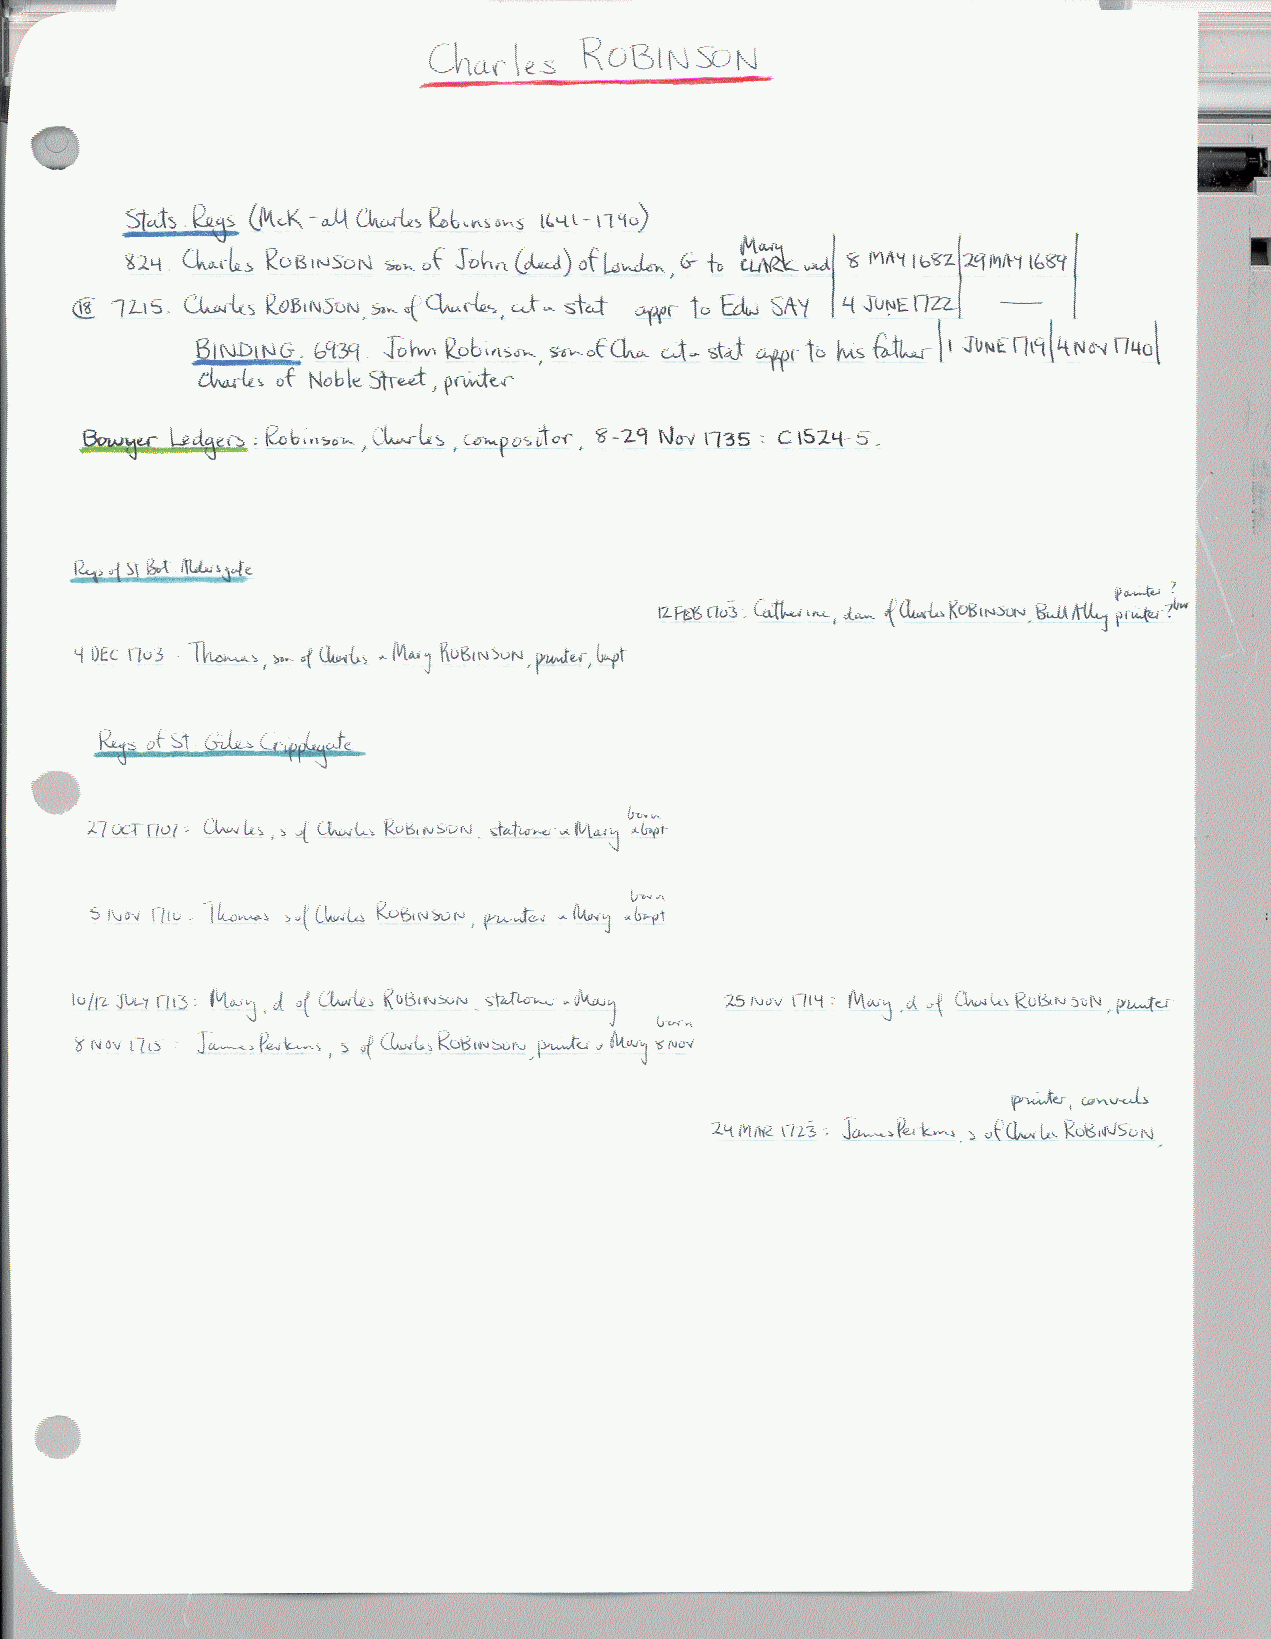 Charles ROBINSON
Stats. Regs (McK - all Charles Robinsons 1641-1740)
Mary
824. Charles ROBINSON son of John (decd) of London, G to CLARK wid | 8 MAY 1682 | 29 MAY 1689 |
18 7215. Charles ROBINSON, son of Charles, cit & stat appr to Edw SAY | 4 JUNE 1722 | — |
BINDING. 6939. John Robinson, son of Cha cit & stat appr to his father | 1 JUNE 1719 | 4 NOV 1740 |
Charles of Noble Street, printer
Bowyer Ledgers: Robinson, Charles, compositor, 8-29 Nov 1735: C1524-5.
Regs of St Bot Aldersgate
painter?
12 FEB 1703: Catherine, dau of Charles ROBINSON, Bull Alley printer?
4 DEC 1703 - Thomas, son of Charles & Mary ROBINSON, printer, bapt
Regs of St Giles Cripplegate
born
27 OCT 1707: Charles, s of Charles ROBINSON, stationer & Mary & bapt
born
5 NOV 1710. Thomas s of Charles ROBINSON, printer & Mary & bapt
10/12 JULY 1713: Mary, d of Charles ROBINSON, stationer & Mary 25 NOV 1714: Mary, d of Charles ROBINSON, printer
born
8 NOV 1715: James Perkins, s of Charles ROBINSON, printer & Mary 8 NOV
printer, convuls
24 MAR 1723: James Perkins, s of Charles ROBINSON.